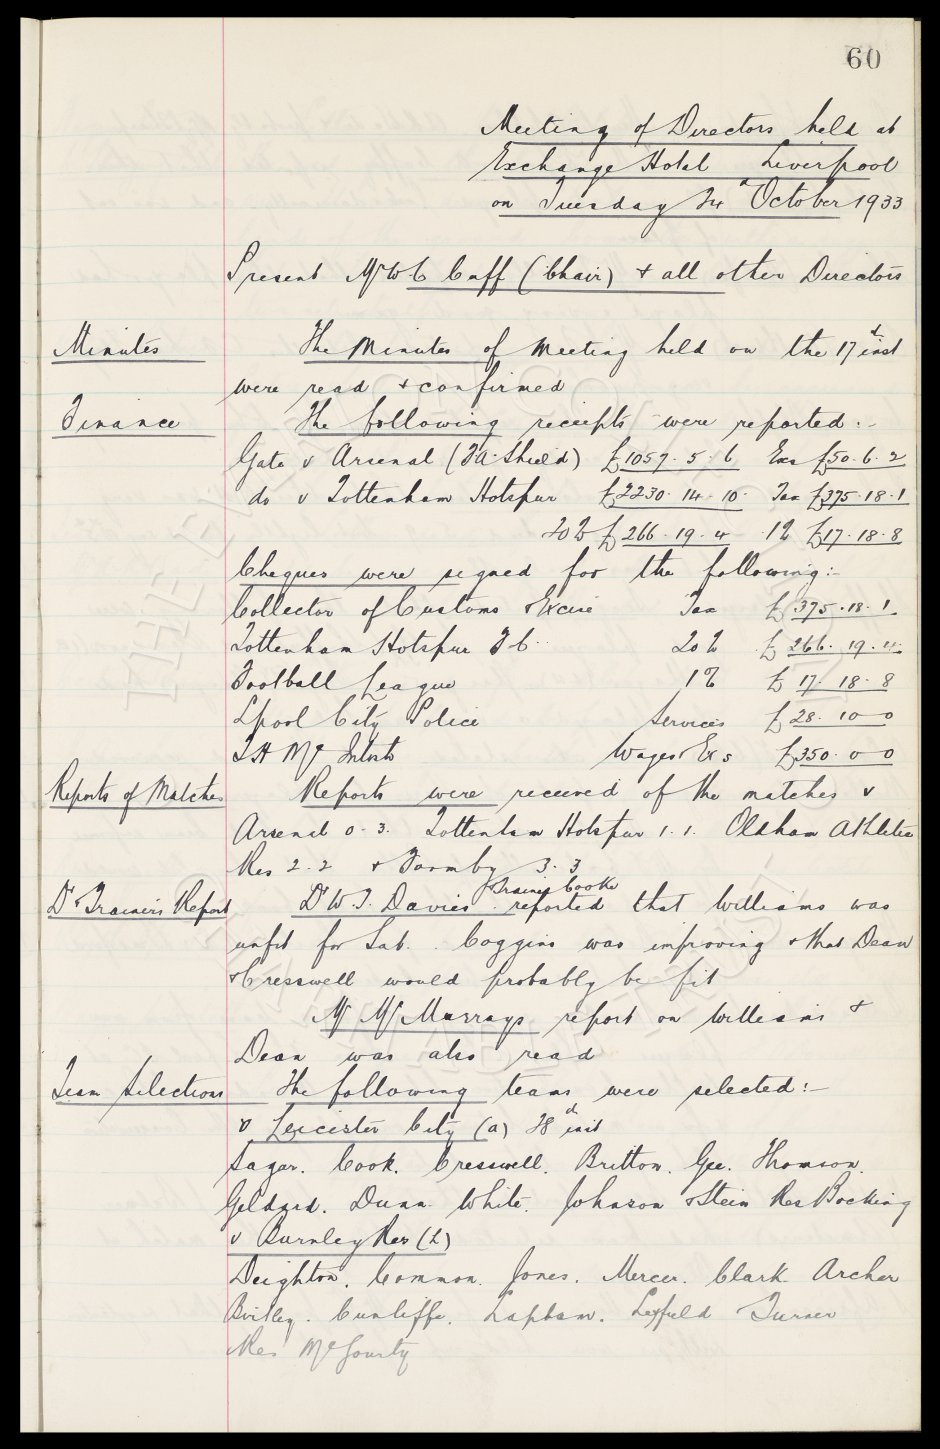 60
Meeting of Directors held at
Exchange Hotel Liverpool
on Tuesday 24th October 1933
Present Mr W C Cuff (Chair) & all other Directors
Minutes The Minutes of Meeting held on the 17th inst
were read & confirmed
Finance The following receipts were reported:-
Gate v Arsenal (FA. Shield) £1057. 5. 6 Exs £50. 6. 2
do v Tottenham Hotspur £2230. 14. 10. Tax £375. 18. 1
20% £266. 19. 4 1% £17. 18. 8
Cheques were signed for the following:-
Collector of Customs & Excise Tax £375. 18. 1.
Tottenham Hotspur F C. 20% £266. 19. 4.
Football League 1% £17. 18. 8
Lpool City Police Services £28. 10 - 0
T H Mc Intosh Wages & Exs £350. 0 - 0
Reports of Matches Reports were received of the matches v
Arsenal 0. 3. Tottenham Hotspur 1. 1. Oldham Athletic
Res 2. 2 & Formby 3. 3
Dr & Trainer's Report Dr W. T. Davies & Trainer Cooke reported that Williams was
unfit for Sat. Coggins was improving & that Dean
& Cresswell would probably be fit
Mr McMurrays report on Williams &
Dean was also read
Team Selections The following teams were selected:-
v Leicester City (a) 28th inst
Sagar. Cook. Cresswell. Britton. Gee. Thomson.
Geldard. Dunn. White. Johnson & Stein Res Bocking
v Burnley Res (h)
Deighton. Common. Jones. Mercer. Clark Archer
Birtley. Cunliffe. Lapham. Leyfield Turner
Res McGourty